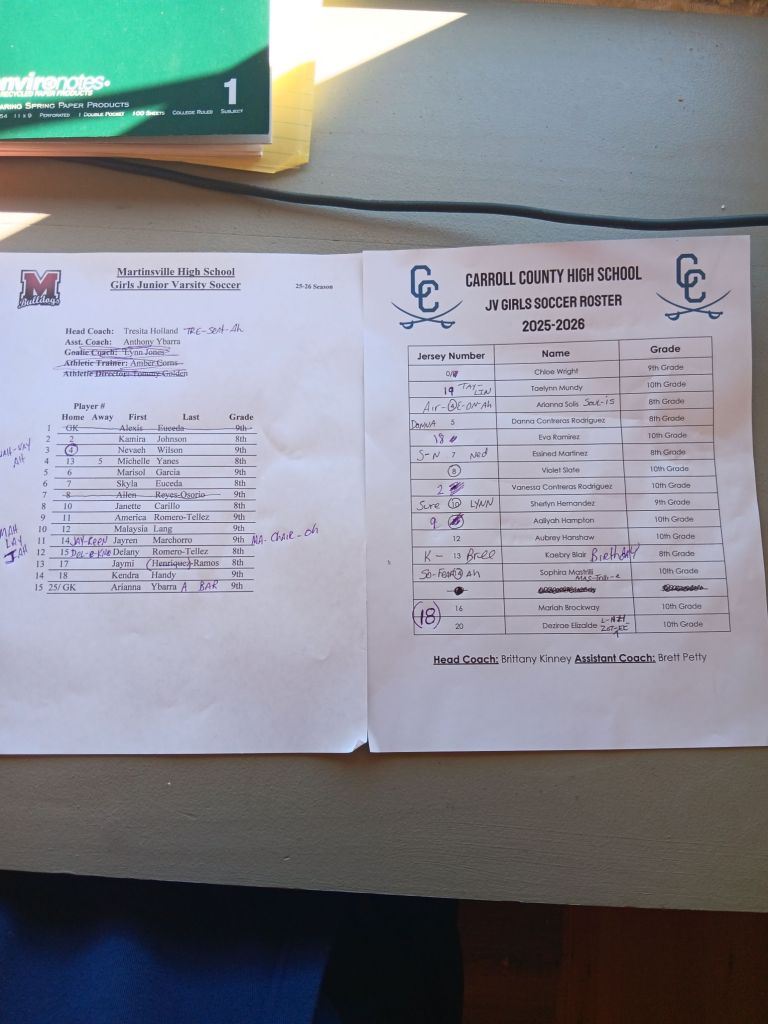 envir notes
RECYCLED PAPER PRODUCTS
ARING SPRING PAPER PRODUCTS 1
54 11 x 9 PERFORATED 1 DOUBLE POCKET 100 SHEETS COLLEGE RULED SUBJECT
M
Bulldogs
Martinsville High School
Girls Junior Varsity Soccer
25-26 Season
Head Coach: Tresita Holland TRE-SENT-Ah
Asst. Coach: Anthony Ybarra
Goalie Coach: Lynn Jones
Athletic Trainer: Amber Corns
Athletic Director: Tommy Golden
Player #
Home Away First Last Grade
1 GK Alexis Euceda 9th
2 2 Kamira Johnson 8th
3 4 Nevaeh Wilson 9th
4 13 5 Michelle Yanes 8th
5 6 Marisol Garcia 9th
6 7 Skyla Euceda 8th
7 8 Ailen Reyes-Osorio 9th
8 10 Janette Carillo 8th
9 11 America Romero-Tellez 9th
10 12 Malaysia Lang 9th
MAH LAY
11 14 JAY-REEN Jayren Marchorro 9th MA-Chair-oh
12 15 Delany Romero-Tellez 8th
13 17 Jaymi Henriquez-Ramos 8th
14 18 Kendra Handy 9th
15 25/ GK Arianna Ybarra A BAR 9th
CC
CARROLL COUNTY HIGH SCHOOL
JV GIRLS SOCCER ROSTER
2025-2026
CC
Jersey Number Name Grade
Chloe Wright 9th Grade
19 TAY-LIN Taelynn Mundy 10th Grade
Air-E-ON-Ah Arianna Solis Soul-is 8th Grade
DANNA 5 Danna Contreras Rodriguez 8th Grade
18 Eva Ramirez 10th Grade
S-N 7 Ned Essined Martinez 8th Grade
8 Violet Slate 10th Grade
2 Vanessa Contreras Rodriguez 10th Grade
Sure 10 LYNN Sherlyn Hernandez 9th Grade
9 Aaliyah Hampton 10th Grade
12 Aubrey Hanshaw 10th Grade
K- 13 Bree Kaebry Blair Birthday 8th Grade
Sophira Mastrili 10th Grade
18 16 Mariah Brockway 10th Grade
20 Dezirae Elizalde 10th Grade
Head Coach: Brittany Kinney Assistant Coach: Brett Petty